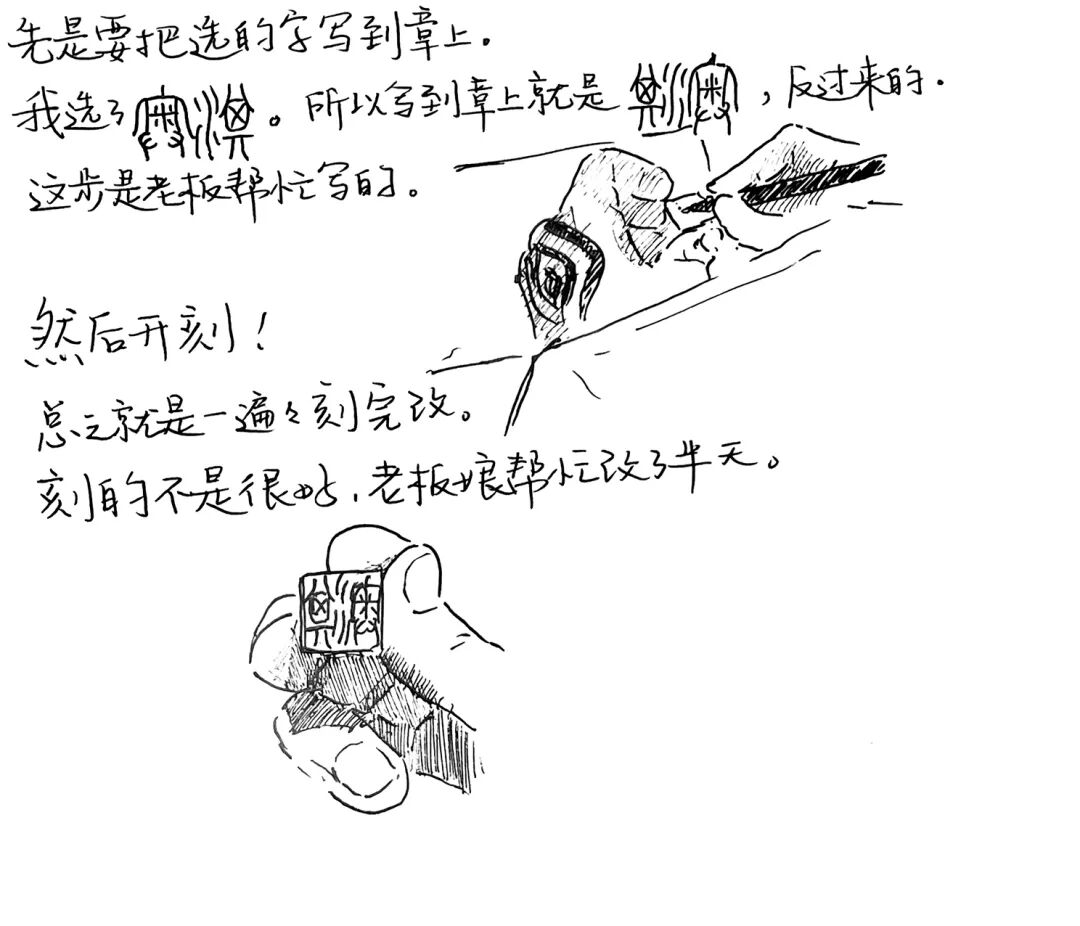 先是要把选的字写到章上.
我选了。所以写到章上就是，反过来的.
这步是老板帮忙写的。
然后开刻！
总之就是一遍々刻完改。
刻的不是很好，老板娘帮忙改了半天。